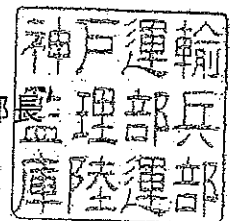 神戸運輸
部長
監理部兵
庫陸運部